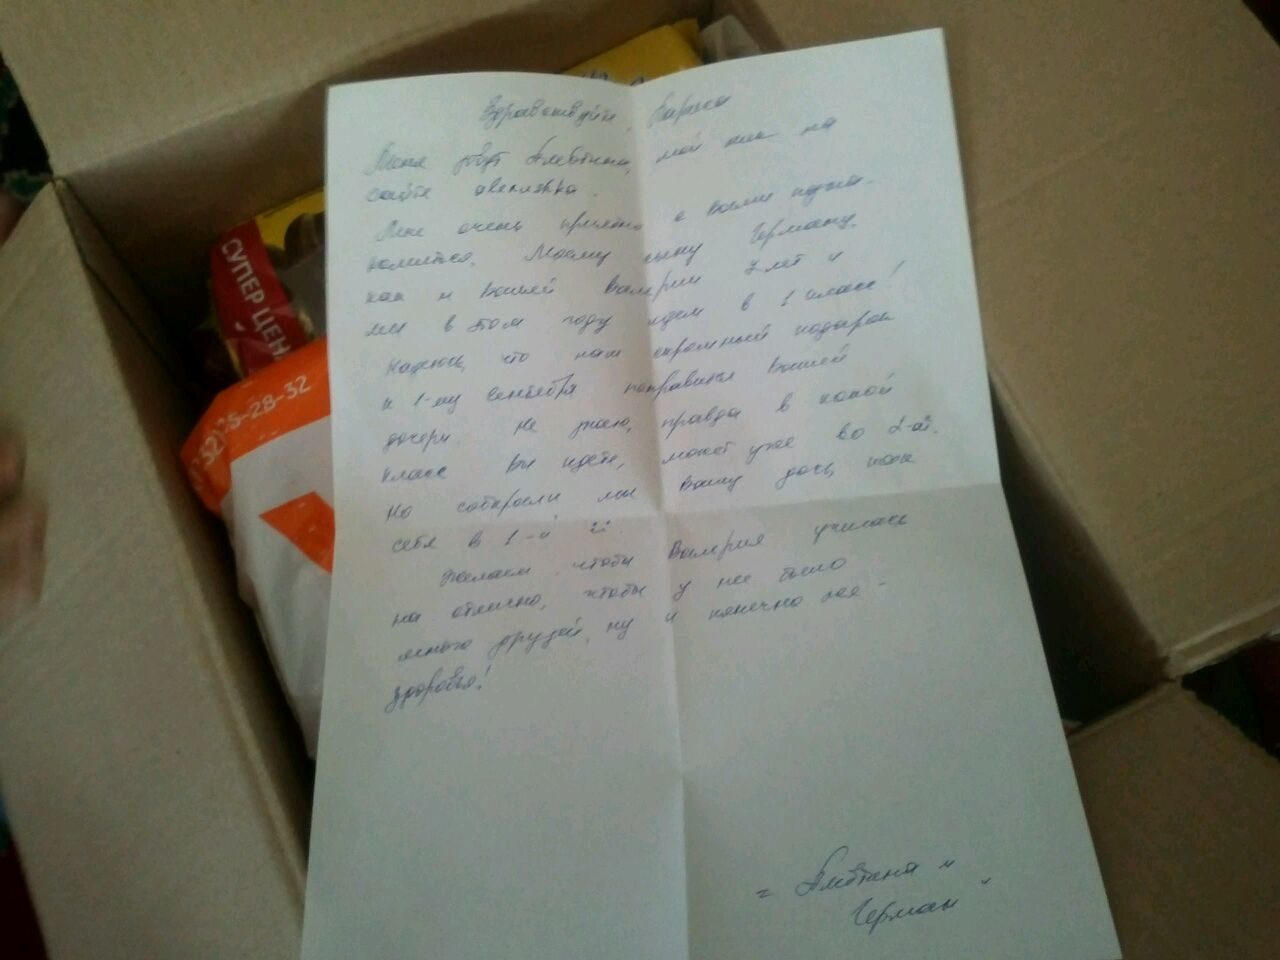 Здравствуйте, Лариса
Меня зовут Алевтина, мой ник на
сайте
Мне очень приятно с Вами позна-
комиться. Моему сыну Герману,
как и Вашей Валерии 7 лет и
мы в этом году идем в 1 класс!
Надеюсь, что наш скромный подарок
к 1-му сентября понравится Вашей
дочери. Не знаю, правда в какой
класс Вы идете, может уже во 2-ой.
Но собирали мы Вашу дочь, как
себя в 1-й
Желаем, чтобы Валерия училась
на отлично, чтобы у нее было
много друзей, ну и конечно же -
здоровья!
Алевтина и
Герман
СУПЕР ЦЕН
25-28-32